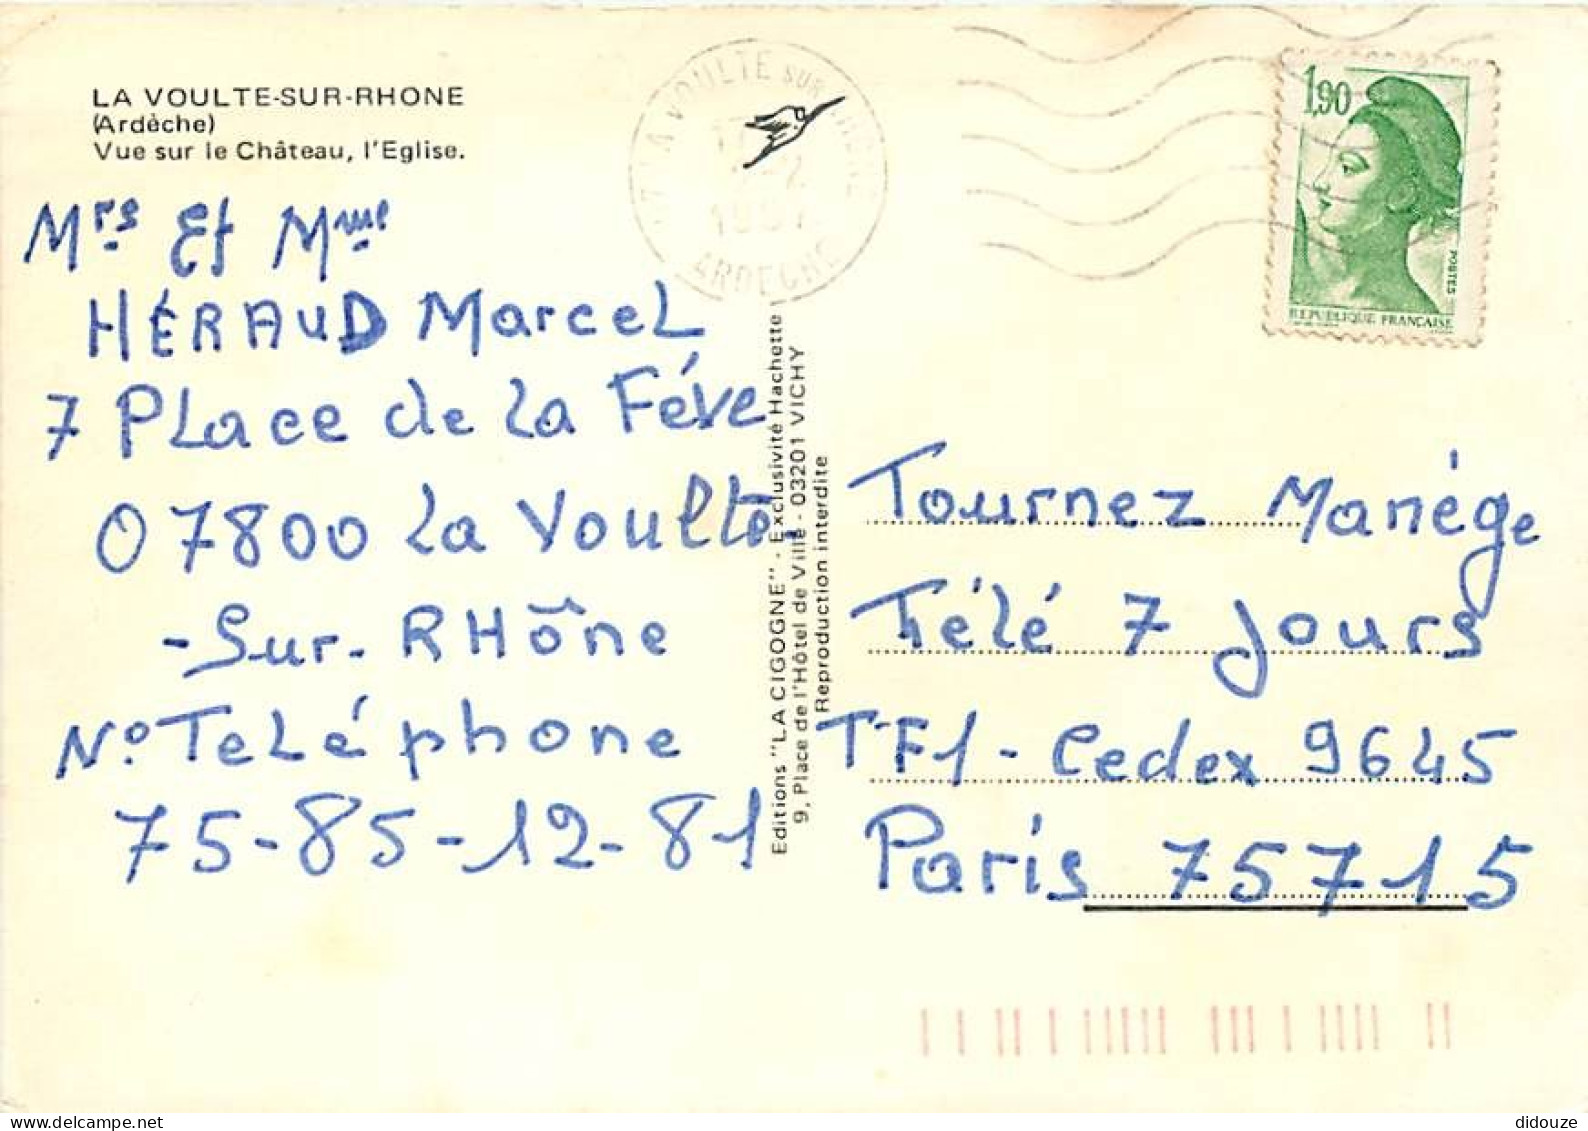 LA VOULTE-SUR-RHONE
(Ardèche)
Vue sur le Château, l'Eglise.
Mrs Et Mme
HÉRAUD Marcel
7 Place de la Féve
07800 La Voulte
-Sur-RHône
N° Téléphone
75-85-12-81
Editions "LA CIGOGNE" - Exclusivité Hachette
9, Place de l'Hôtel de Ville - 03201 VICHY
Reproduction interdite
LA VOULTE SUR RHONE
ARDECHE
1,90
POSTES
REPUBLIQUE FRANÇAISE
Tournez Manége
Télé 7 Jours
TF1 - Cedex 9645
Paris 75715
didouze